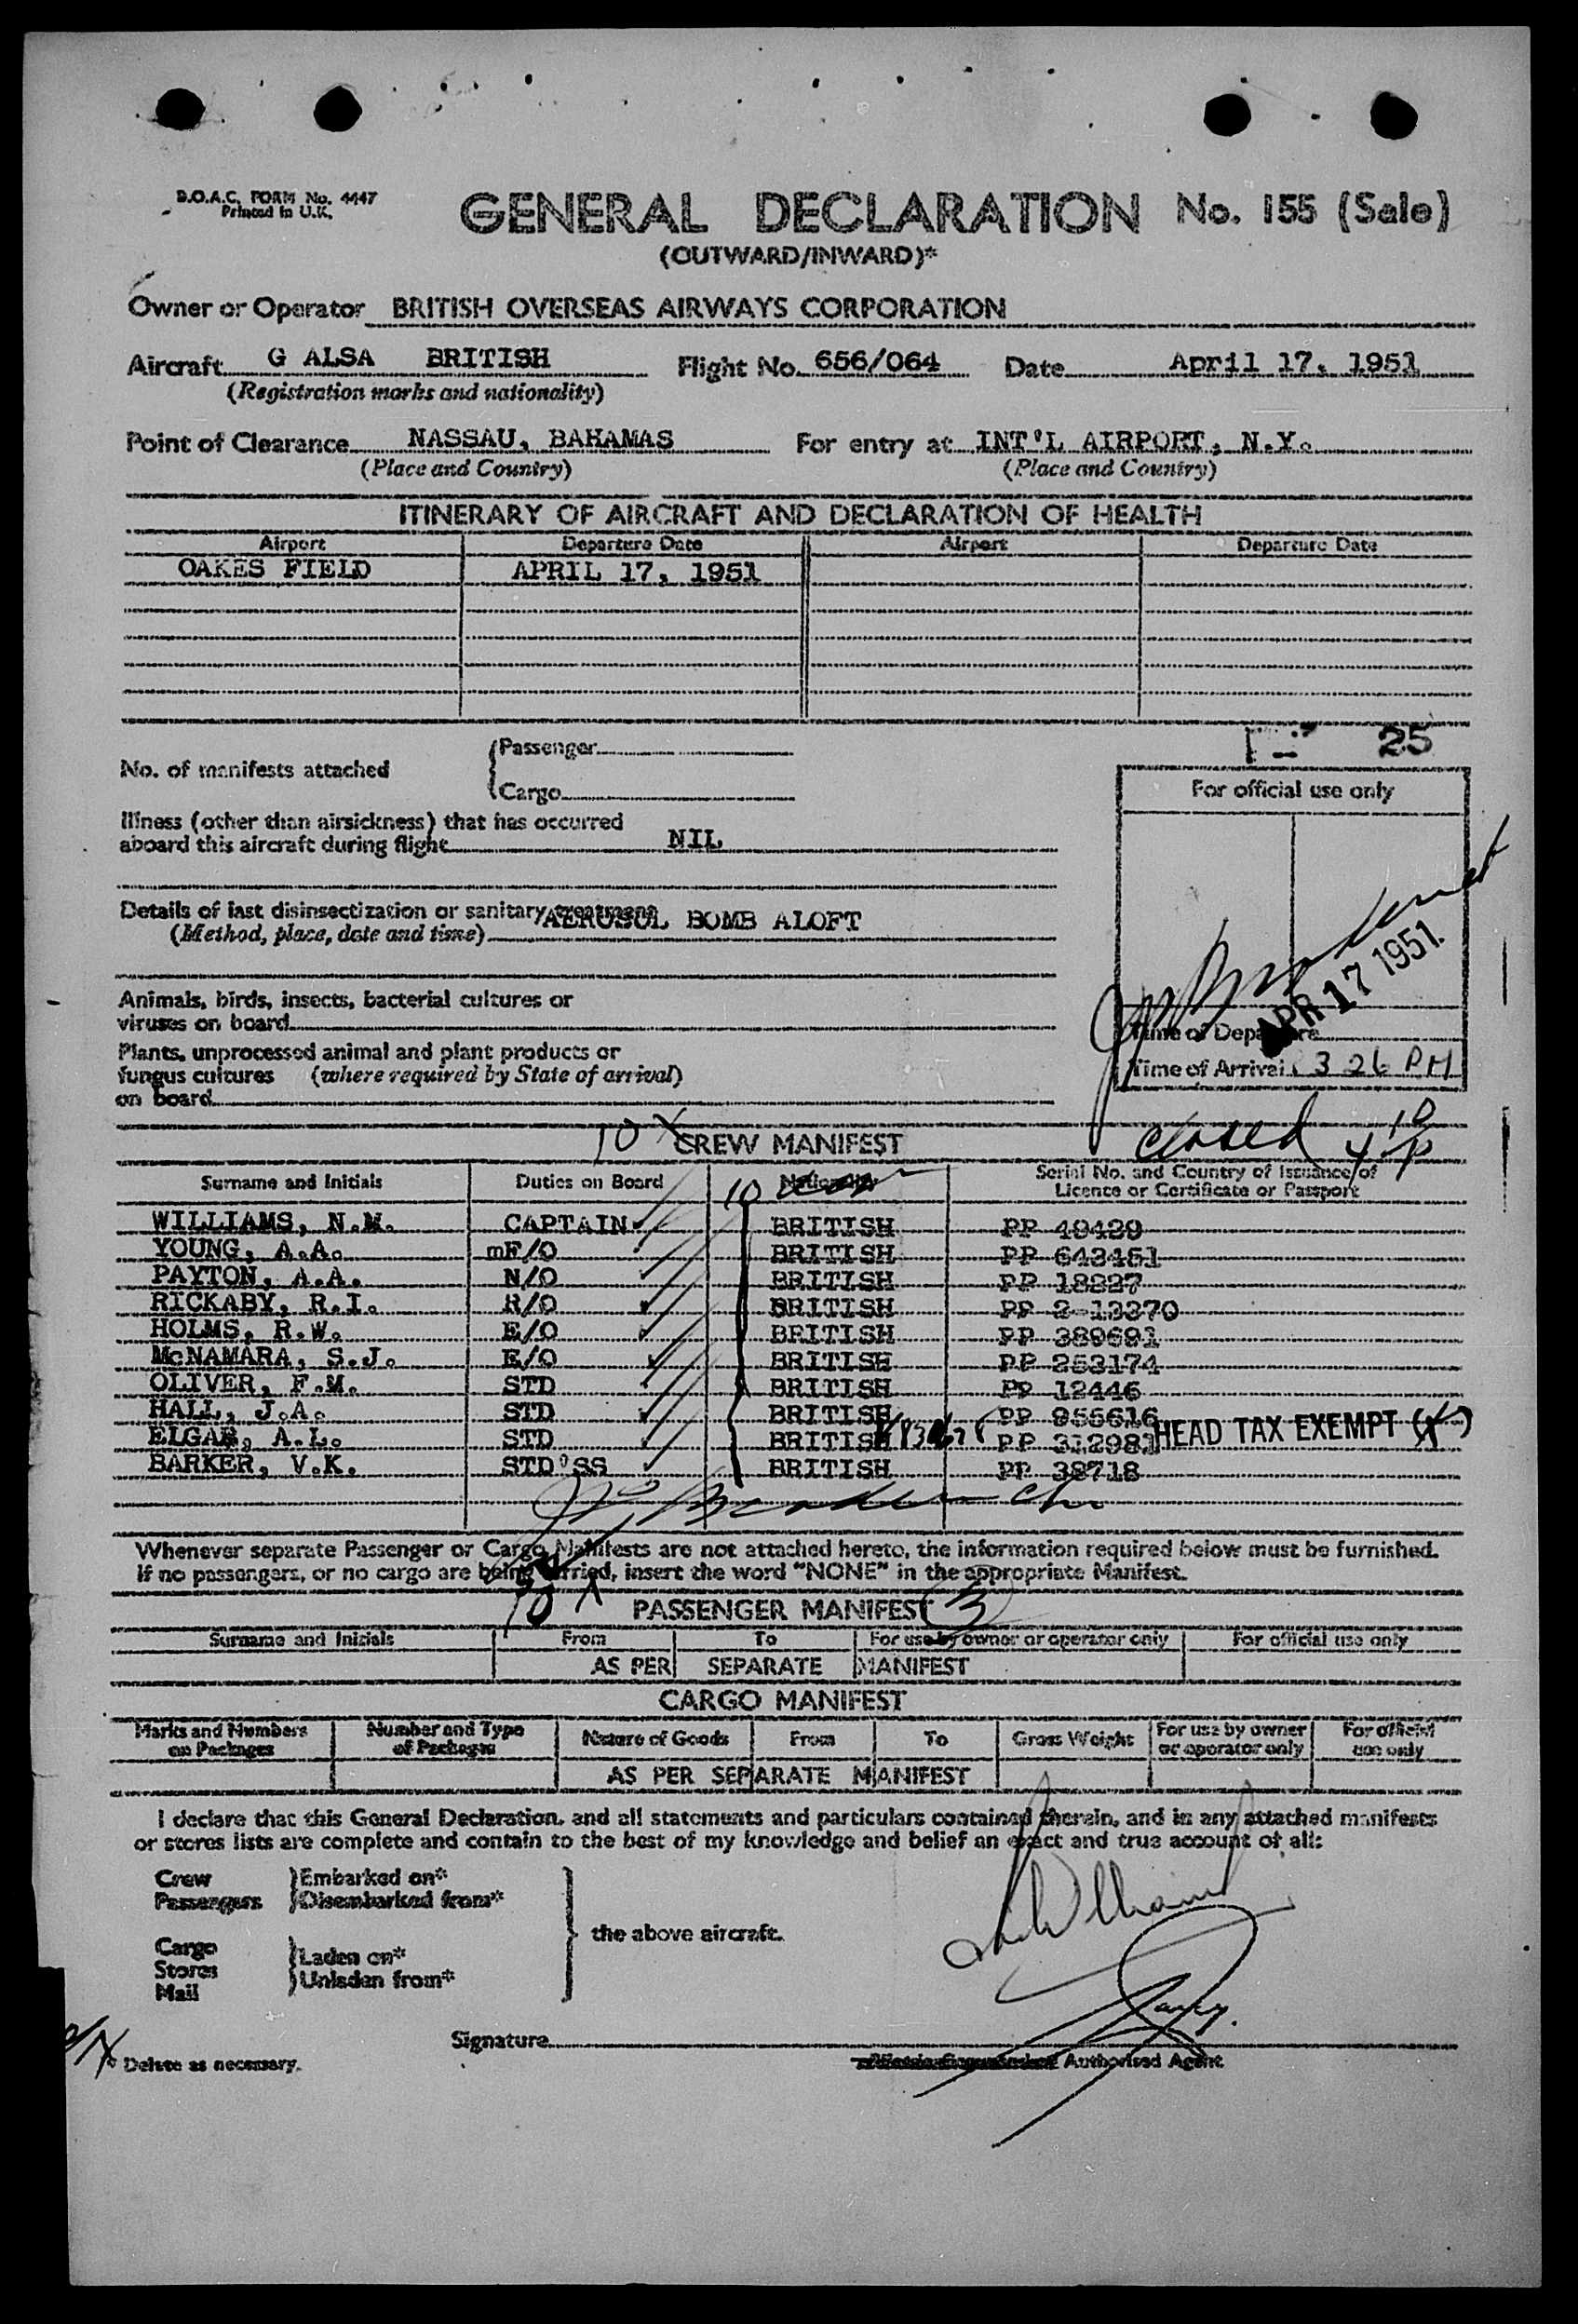 B.O.A.C. FORM No. 4447
Printed in U.K.
GENERAL DECLARATION No. 155 (Sale)
(OUTWARD/INWARD)*
Owner or Operator BRITISH OVERSEAS AIRWAYS CORPORATION
Aircraft G ALSA BRITISH Flight No. 656/064 Date April 17, 1951
(Registration marks and nationality)
Point of Clearance NASSAU, BAHAMAS For entry at INT'L AIRPORT, N.Y.
(Place and Country) (Place and Country)
ITINERARY OF AIRCRAFT AND DECLARATION OF HEALTH
Airport Departure Date Airport Departure Date
OAKES FIELD APRIL 17, 1951
25
No. of manifests attached
Passenger
Cargo
For official use only
Illness (other than airsickness) that has occurred
aboard this aircraft during flight NIL
Details of last disinsectization or sanitary treatment AEROSOL BOMB ALOFT
(Method, place, date and time)
APR 17 1951
Animals, birds, insects, bacterial cultures or
viruses on board
Time of Departure
Plants, unprocessed animal and plant products or
fungus cultures (where required by State of arrival)
on board
Time of Arrival 3 26 PM
closed 4 10 P
10 X CREW MANIFEST
Surname and Initials Duties on Board Nationality Serial No. and Country of Issuance of
Licence or Certificate or Passport
10
WILLIAMS, N.M. CAPTAIN BRITISH PP 49429
YOUNG, A.A. mF/O BRITISH PP 643451
PAYTON, A.A. N/O BRITISH PP 18327
RICKABY, R.I. R/O BRITISH PP 2-13370
HOLMS, R.W. E/O BRITISH PP 389691
McNAMARA, S.J. E/O BRITISH PP 253174
OLIVER, F.M. STD BRITISH PP 12446
HALL, J.A. STD BRITISH PP 956616
ELGAR, A.L. STD BRITISH PP 312981 HEAD TAX EXEMPT
BARKER, V.K. STD'SS BRITISH PP 38718
Whenever separate Passenger or Cargo Manifests are not attached hereto, the information required below must be furnished.
If no passengers, or no cargo are being carried, insert the word "NONE" in the appropriate Manifest.
PASSENGER MANIFEST (3)
Surname and Initials From To For use by owner or operator only For official use only
AS PER SEPARATE MANIFEST
CARGO MANIFEST
Marks and Numbers on Packages Number and Type of Packages Nature of Goods From To Gross Weight For use by owner or operator only For official use only
AS PER SEPARATE MANIFEST
I declare that this General Declaration, and all statements and particulars contained therein, and in any attached manifests
or stores lists are complete and contain to the best of my knowledge and belief an exact and true account of all:
Crew Embarked on*
Passengers Disembarked from*
the above aircraft.
Cargo
Stores Laden on*
Mail Unladen from*
Signature
* Delete as necessary. Authorised Agent